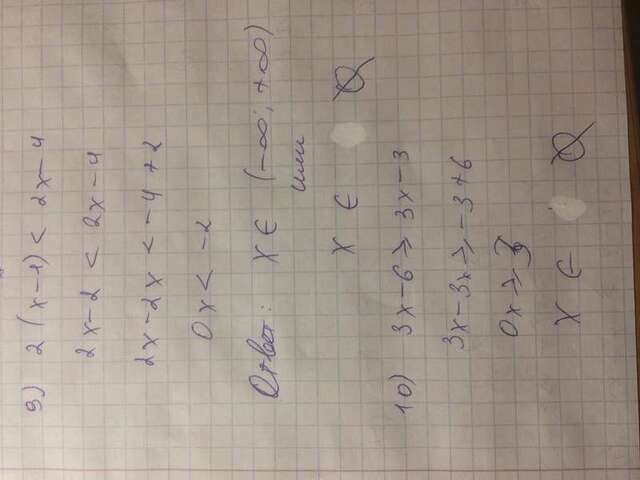 9) 2 (x-1) < 2x-4
2x-2 < 2x-4
2x-2x < -4+2
0x < -2
Ответ: X ∈ (-∞; +∞)
или
X ∈ ∅
10) 3x-6 ≥ 3x-3
3x-3x ≥ -3+6
0x ≥ 3
X ∈ ∅